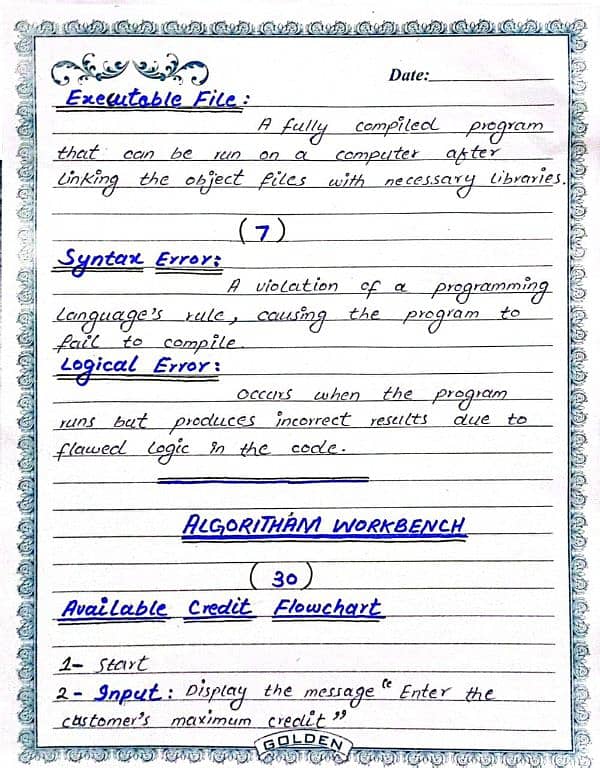 Date:
Executable File:
A fully compiled program
that can be run on a computer after
linking the object files with necessary libraries.
(7)
Syntax Error:
A violation of a programming
language's rule, causing the program to
fail to compile.
Logical Error:
occurs when the program
runs but produces incorrect results due to
flawed logic in the code.
ALGORITHAM WORKBENCH
(30)
Available Credit Flowchart
1- Start
2- Input: Display the message "Enter the
customer's maximum credit"
GOLDEN